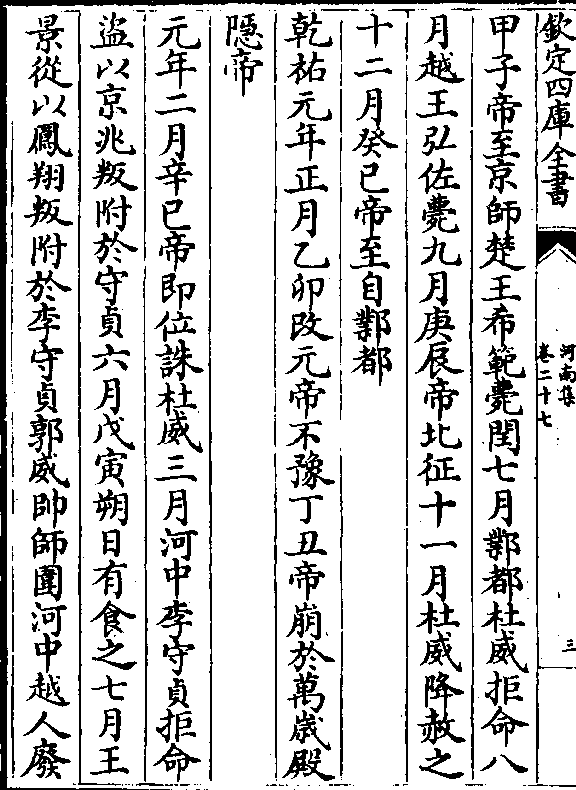 欽定四庫全書
河南集
卷二十七
三
甲子帝至京師楚王希範薨閏七月鄴都杜威拒命八
月越王弘佐薨九月庚辰帝北征十一月杜威降赦之
十二月癸巳帝至自鄴都
乾祐元年正月乙卯改元帝不豫丁丑帝崩於萬歲殿
隠帝
元年二月辛巳帝即位誅杜威三月河中李守貞拒命
盜以京兆叛附於守貞六月戊寅朔日有食之七月王
景從以鳳翔叛附於李守貞郭威帥師圍河中越人廢